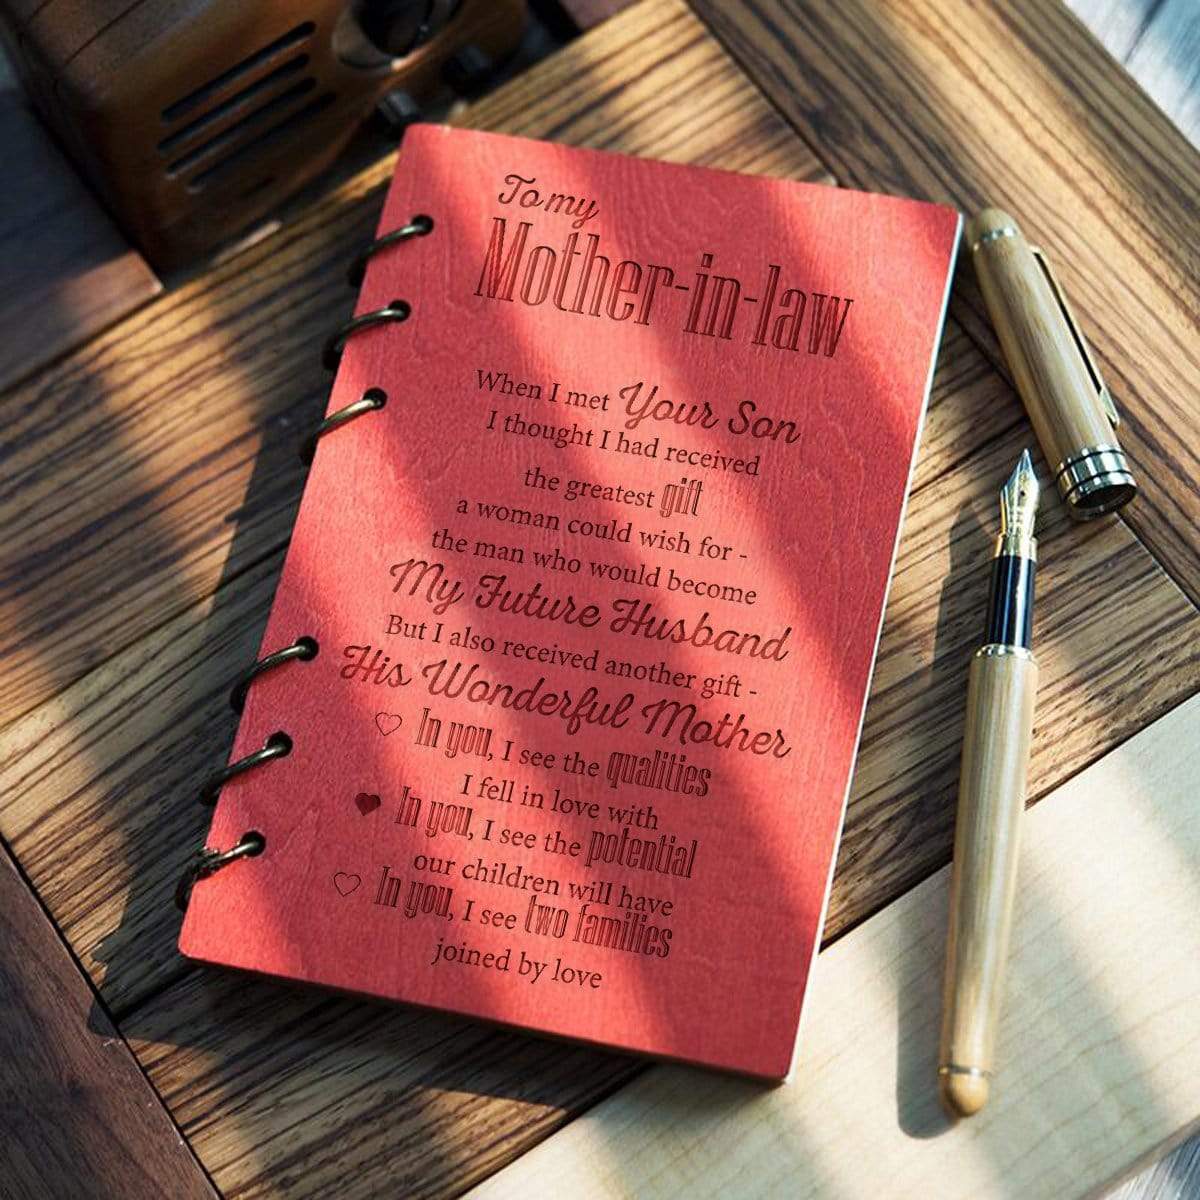 To my
Mother-in-law
When I met Your Son
I thought I had received
the greatest gift
a woman could wish for -
the man who would become
My Future Husband
But I also received another gift -
His Wonderful Mother
In you, I see the qualities
I fell in love with
In you, I see the potential
our children will have
In you, I see two families
joined by love